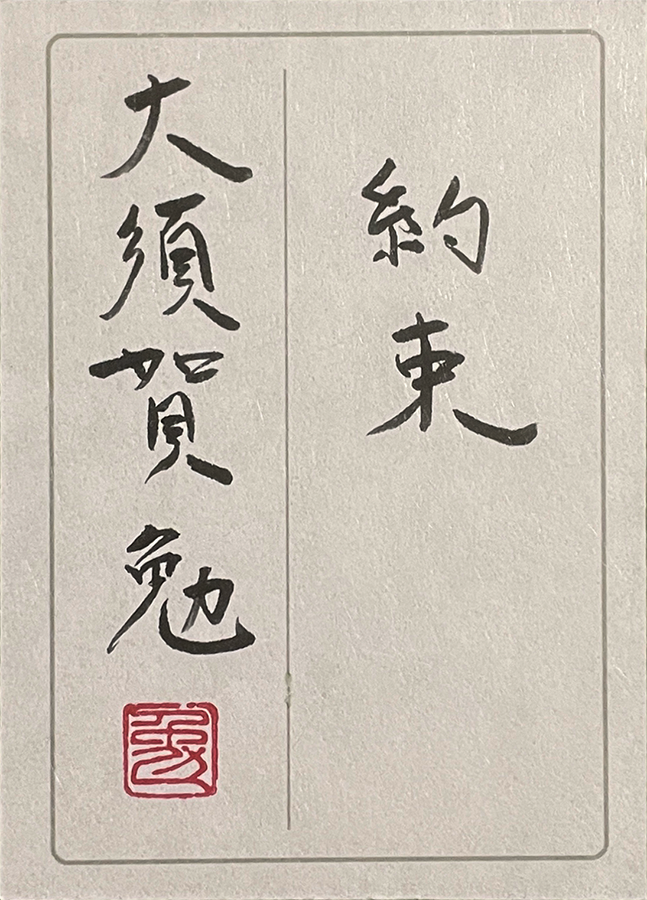 約束
大須賀勉